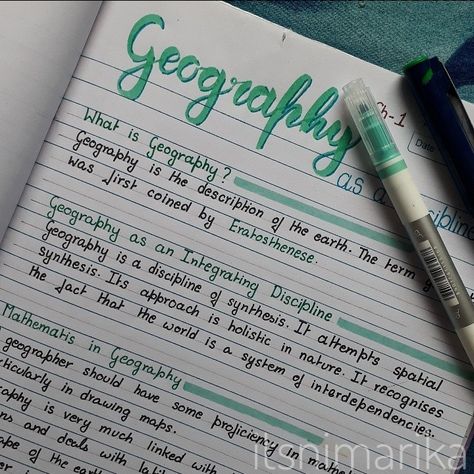 Geography
Ch-1
Date
as a
What is Geography?
Geography is the description of the earth. The term
was first coined by Eratosthenese.
Geography as an Integrating Discipline
Geography is a discipline of synthesis. It attempts spatial
synthesis. Its approach is holistic in nature. It recognises
the fact that the world is a system of interdependencies.
Mathematis in Geography
geographer should have some proficiency in
particularly in drawing maps.
is very much linked with
and deals with
of the
itsnimarika